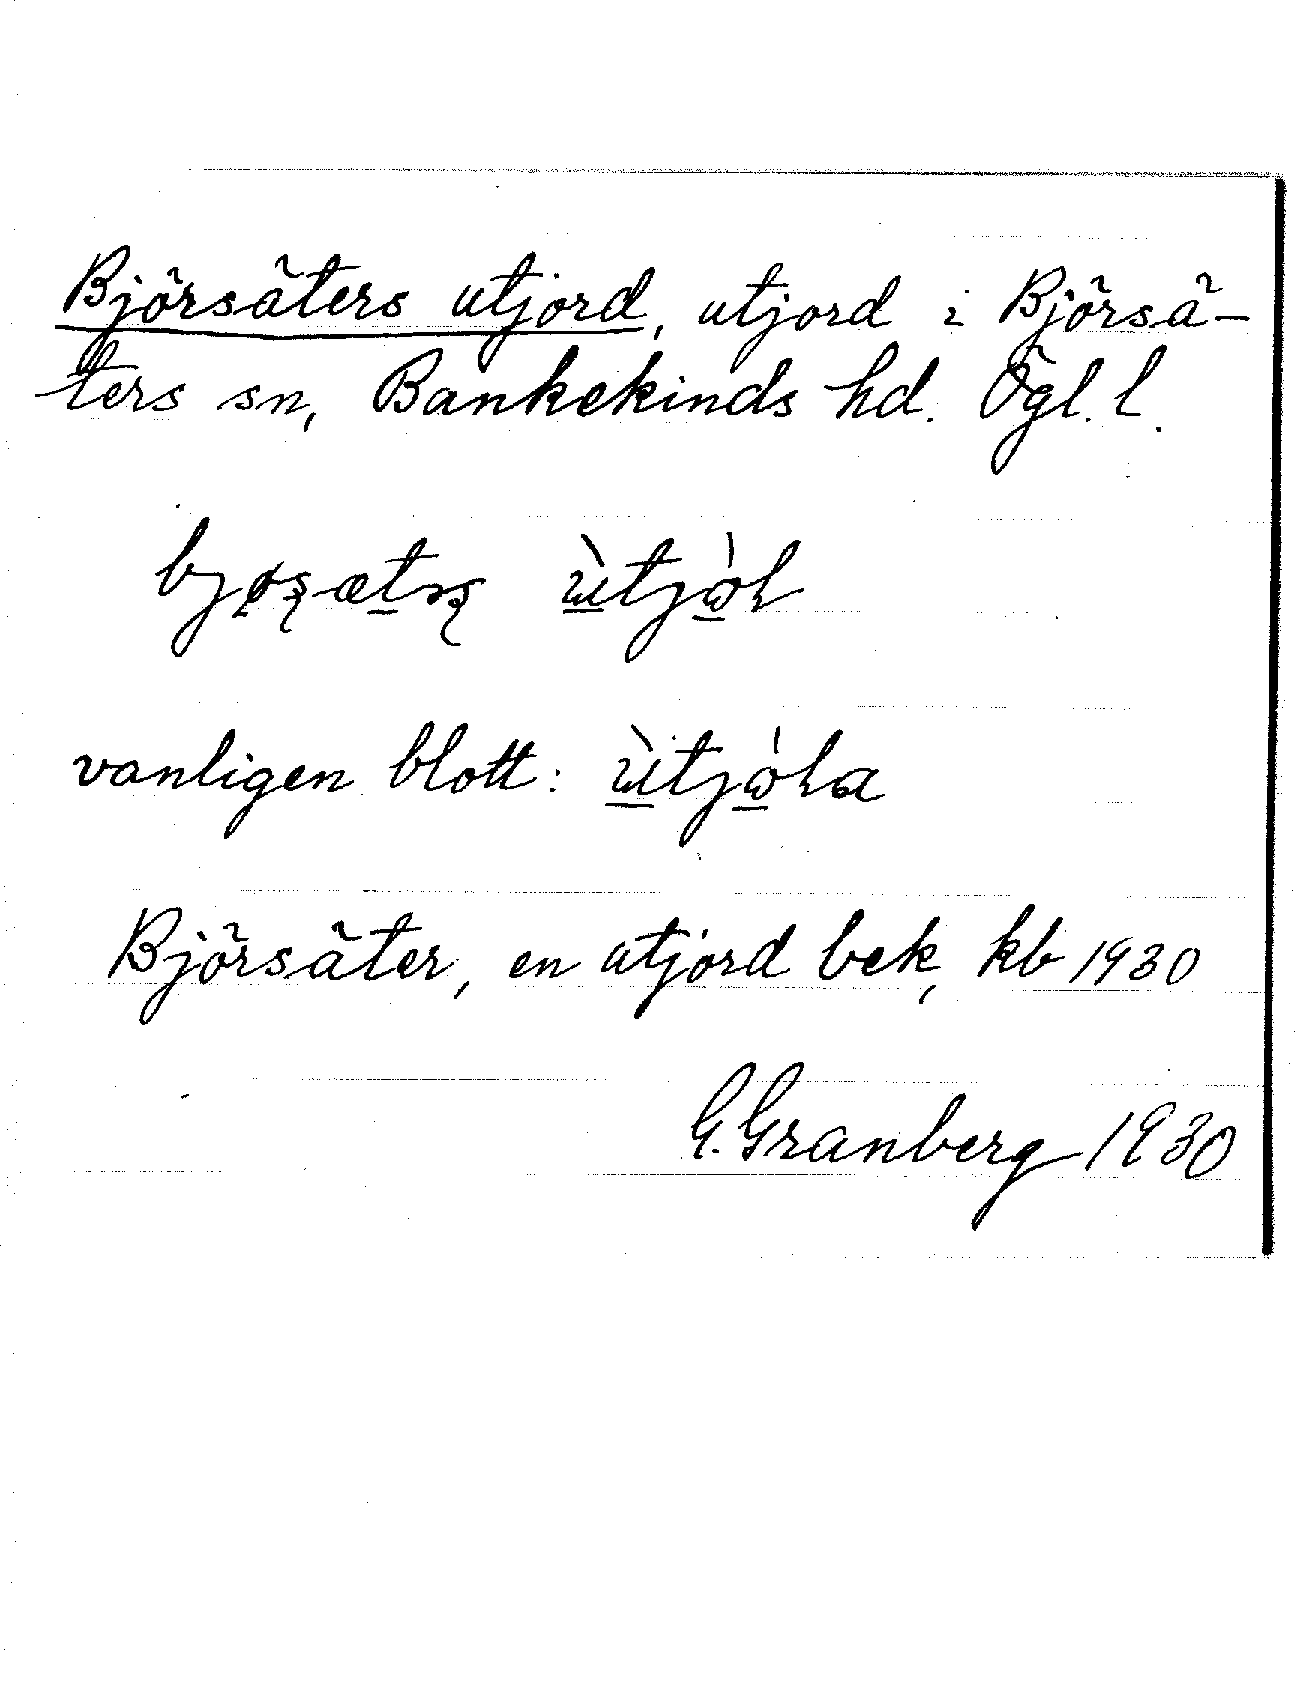 Björsäters utjord, utjord i Björsä-
ters sn, Bankekinds hd. Ögl. l.
vanligen blott:
Björsäter, en utjord bek, kb 1930
G. Granberg 1930